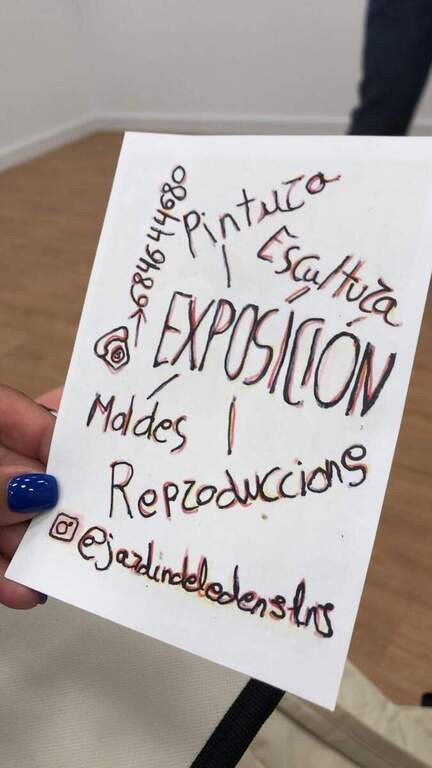 684644680
Pintura
Escultura
EXPOSICIÓN
Moldes
Reproduccions
@jardindeledenslns